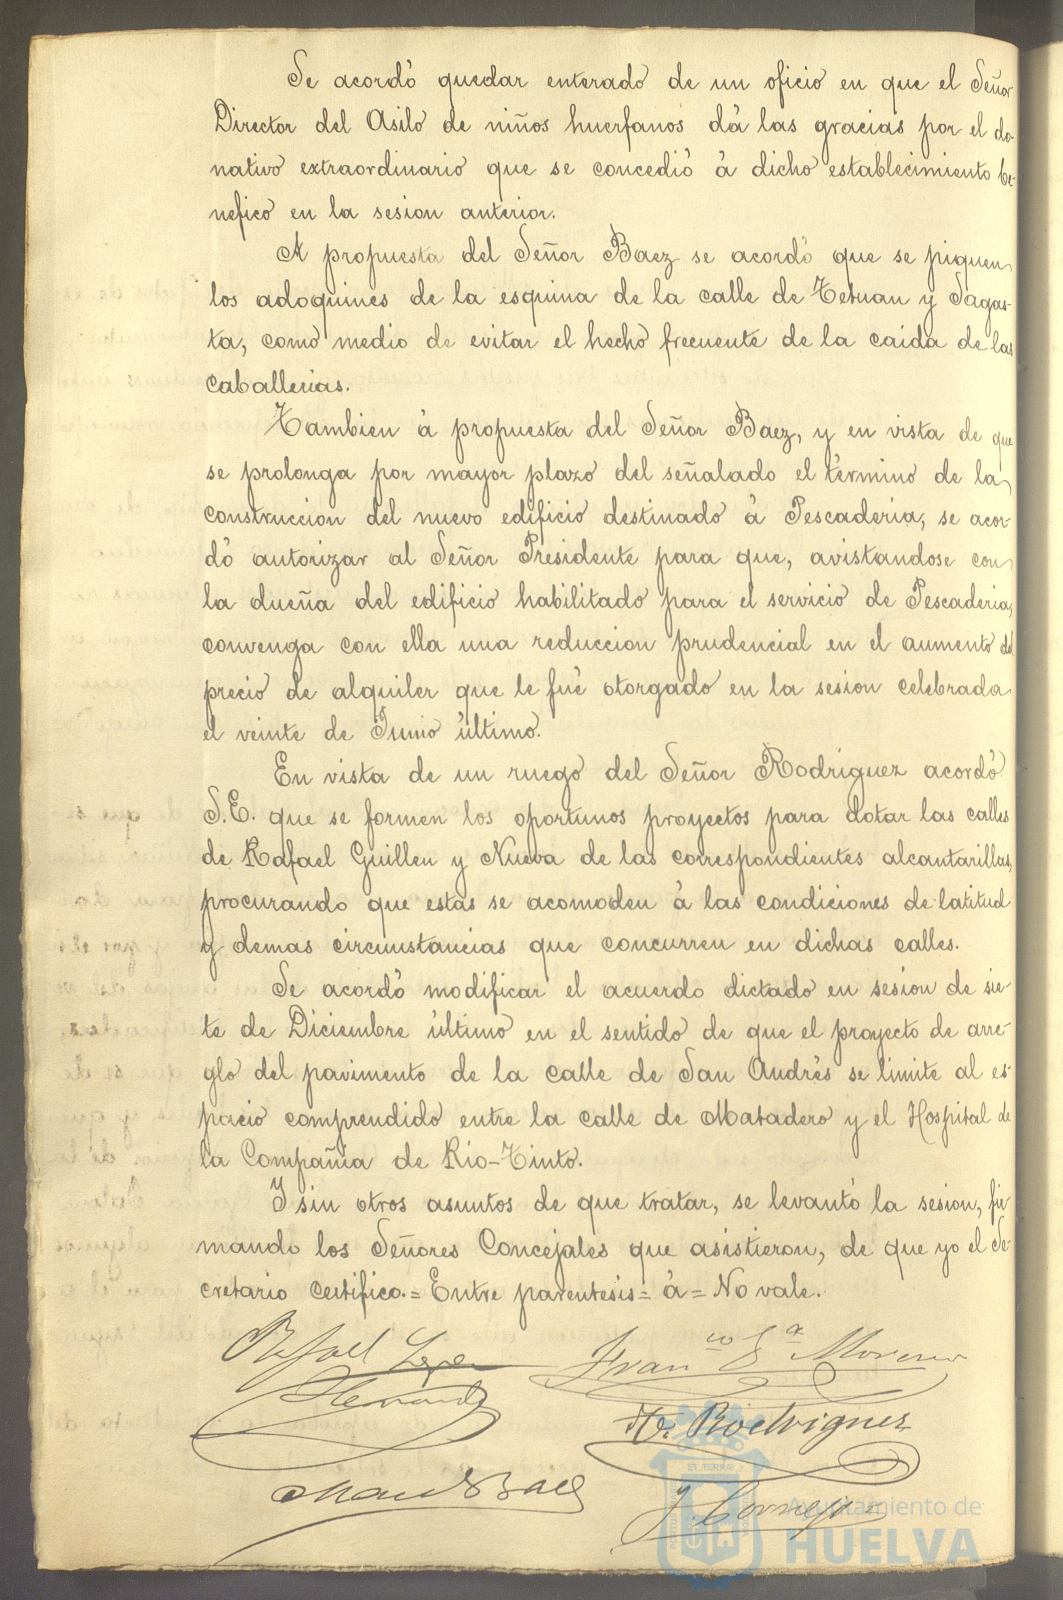 Se acordó quedar enterado de un oficio en que el Señor
Director del Asilo de niños huerfanos dá las gracias por el do-
nativo extraordinario que se concedió á dicho establecimiento be-
nefico en la sesion anterior.
A propuesta del Señor Baez se acordó que se piquen
los adoquines de la esquina de la calle de Tetuan y Sagas-
ta, como medio de evitar el hecho frecuente de la caida de las
caballerias.
Tambien á propuesta del Señor Baez, y en vista de que
se prolonga por mayor plazo del señalado el término de la
construccion del nuevo edificio destinado á Pescaderia, se acor-
dó autorizar al Señor Presidente para que, avistandose con
la dueña del edificio habilitado para el servicio de Pescaderia,
convenga con ella una reduccion prudencial en el aumento del
precio de alquiler que le fué otorgado en la sesion celebrada
el veinte de Junio último.
En vista de un ruego del Señor Rodriguez acordó
S.E. que se formen los oportunos proyectos para dotar las calles
de Rafael Guillen y Nueva de las correspondientes alcantarillas,
procurando que estas se acomoden á las condiciones de latitud
y demas circunstancias que concurren en dichas calles.
Se acordó modificar el acuerdo dictado en sesion de sie-
te de Diciembre último en el sentido de que el proyecto de arre-
glo del pavimento de la calle de San Andrés se limite al es-
pacio comprendido entre la calle de Matadero y el Hospital de
la Compañia de Rio-Tinto.
Y sin otros asuntos de que tratar, se levantó la sesion, fir-
mando los Señores Concejales que asistieron, de que yo el Se-
cretario certifico.= Entre parentesis= á= No vale.
Rafael Franco Ga Moreno
Hernandz
Ho. Rodriguez
Man Baez
J. Cornejo
Ayuntamiento de
HUELVA